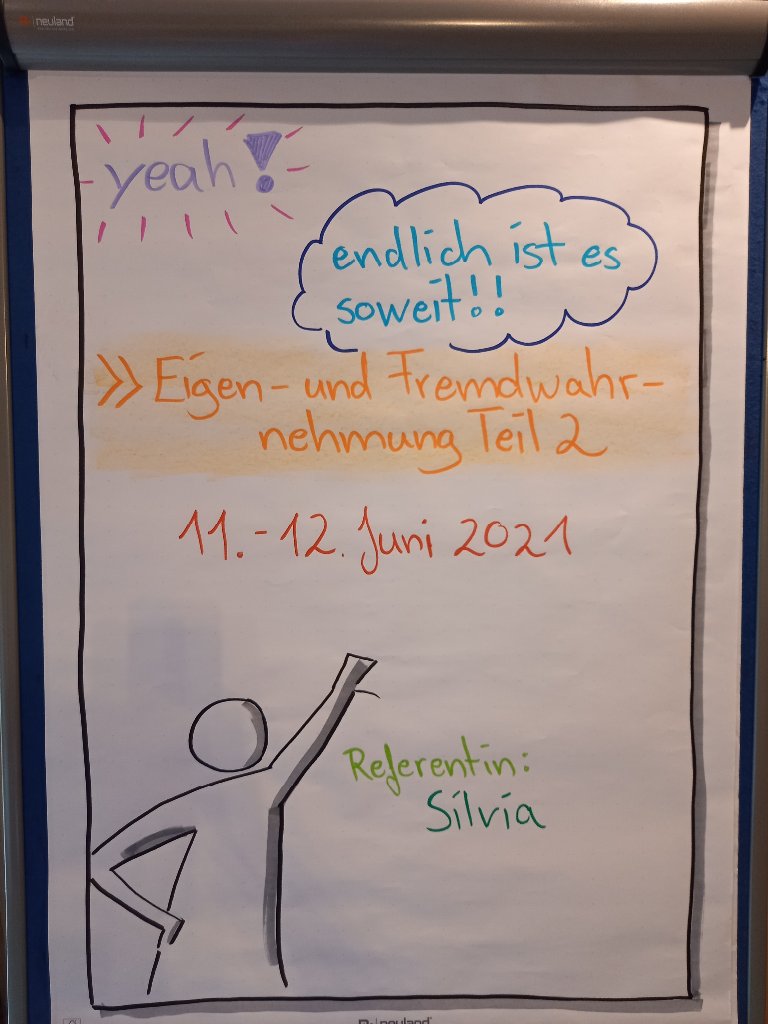 neuland
yeah!
endlich ist es
soweit!!
>> Eigen- und Fremdwahr-
nehmung Teil 2
11.-12. Juni 2021
Referentin:
Silvia
neuland